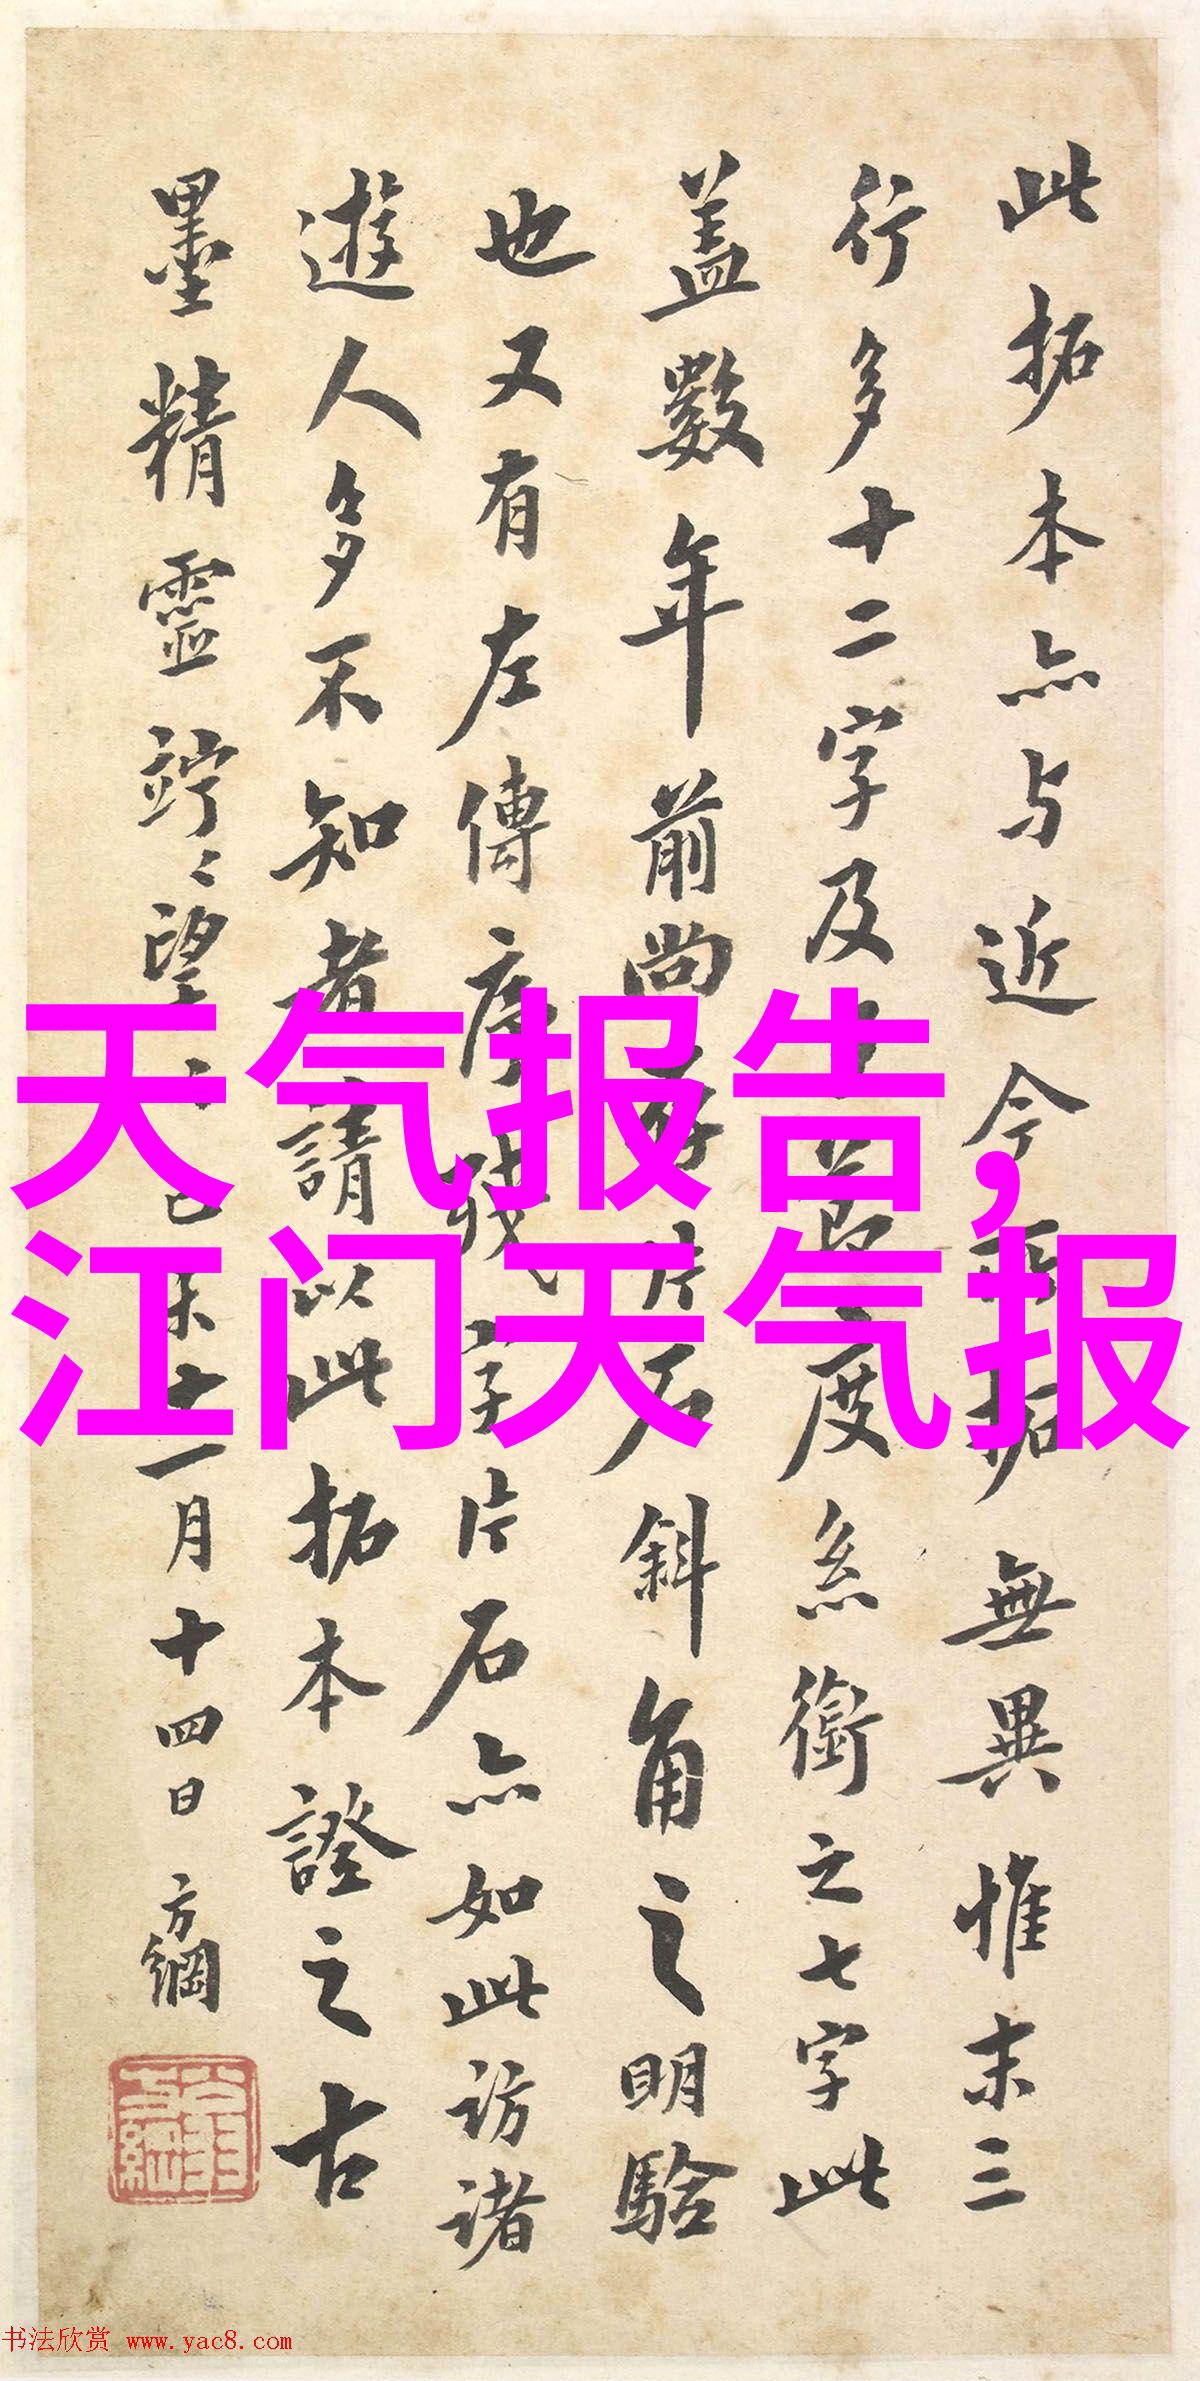 此拓本亦与近今所拓無異惟末三
行多十二字及度絫銜之七字此
蓋數年前尚存片石斜角之明驗
也又有左傳序殘字片石亦如此访诸
遊人多不知者請以此拓本證之古
墨精靈竚〻望十一月十四日 方綱
天气报告,
江门天气报
书法欣赏 www.yac8.com